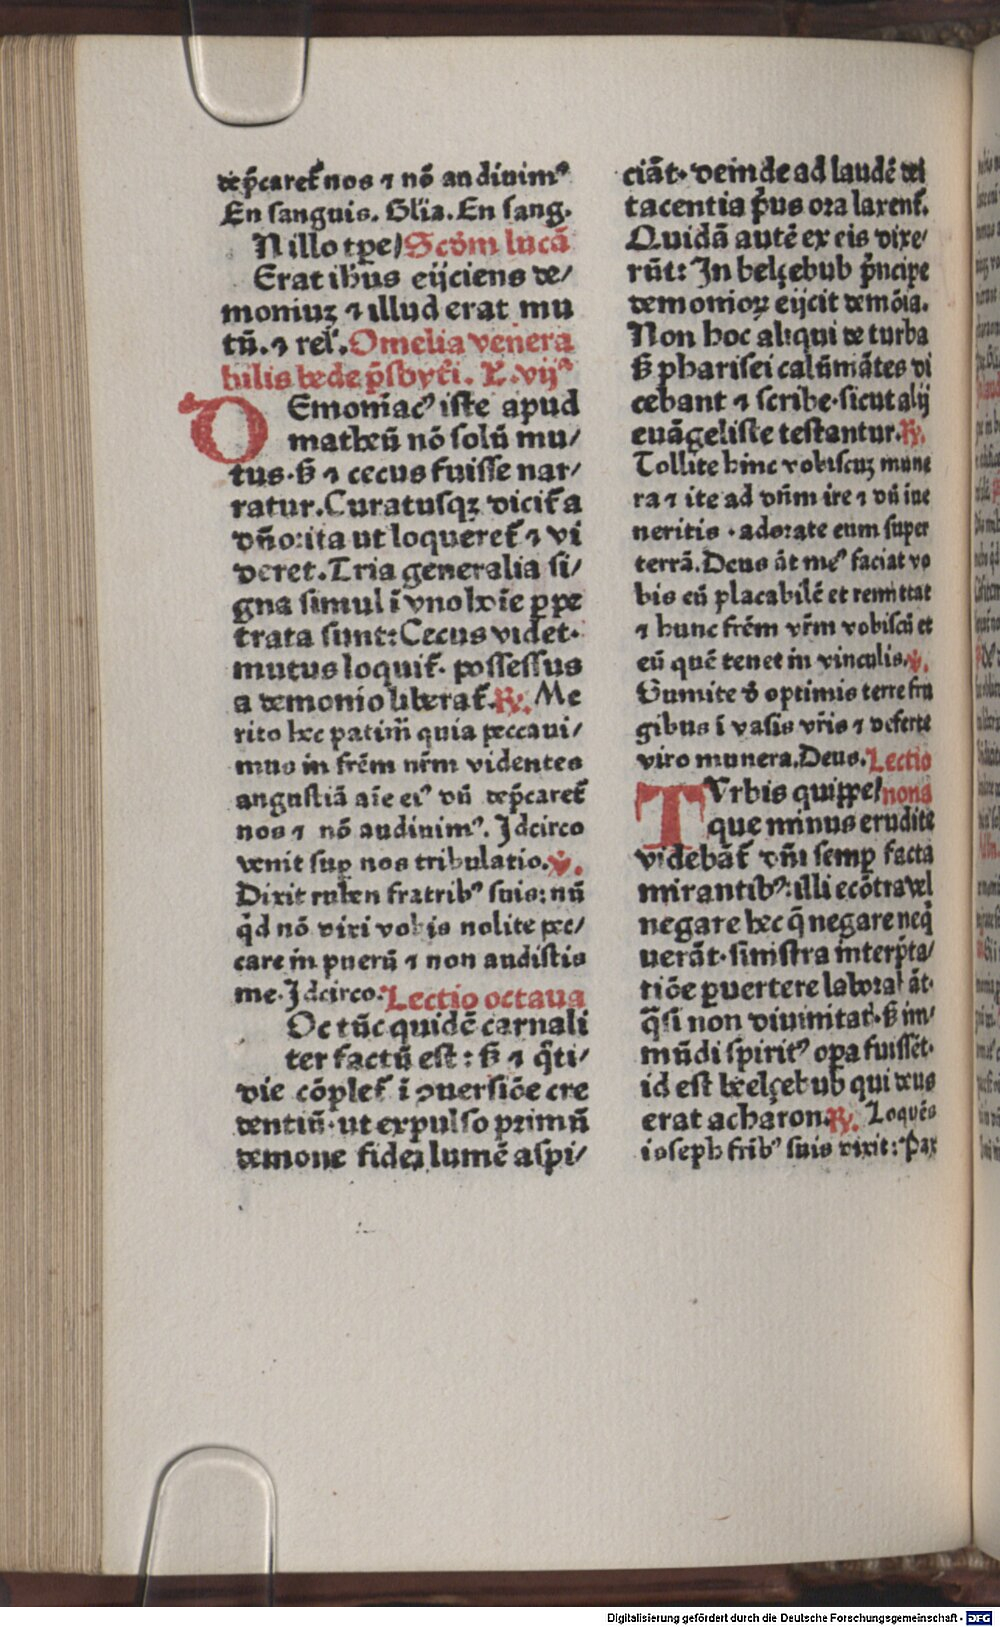 dep̄caret᷑ nos ⁊ nō audiuimꝰ
En sanguis. Gl'ia. En sang.
N illo tꝑe/ Scd̄m lucā
Erat ih̄us eijciens de/
moniuꝫ ⁊ illud erat mu
tū. ⁊ rel'. Omelia venera
bilis bede p̄sbyt᷑i. L. vij
Emoniacꝰ iste apud
matheū nō solū mu/
tus. ß ⁊ cecus fuisse nar/
ratur. Curatusqꝫ dicit᷑ a
dn̄o: ita ut loqueret᷑ ⁊ vi
deret. Tria generalia si/
gna simul ī vno hoīe ꝑpe
trata sunt: Cecus videt.
mutus loquit᷑. possessus
a demonio liberat᷑. ℟. Me
rito hec patim̄ quia peccaui/
mus in fr̄em nr̄m videntes
angustiā aīe eiꝰ dū dep̄caret᷑
nos ⁊ nō audiuimꝰ. Idcirco
venit suꝑ nos tribulatio. ℣.
Dixit ruben fratribꝰ suis: nū
qd̄ nō dixi vobis nolite pec/
care in puerū ⁊ non audistis
me. Idcirco. Lectio octaua
Oc tūc quidē carnali
ter factū est: ß ⁊ q̄ti/
die cōplet᷑ ī ꝯuersiōe cre
dentiū. ut expulso primū
demone fidei lumē aspi/
ciāt. deinde ad laudē dei
tacentia p̄us ora laxent᷑.
Quidā autē ex eis dixe/
rūt: In belçebub p̄ncipe
demonioꝝ eijcit demōia.
Non hoc aliqui de turba
ß pharisei calūmātes di
cebant ⁊ scribe. sicut alij
euāgeliste testantur. ℟.
Tollite hinc vobiscuꝫ mune
ra ⁊ ite ad dn̄m tre ⁊ dū iue
neritis. adorate eum super
terrā. Deus āt meꝰ faciat vo
bis eū placabilē et remittat
⁊ hunc fr̄em vr̄m vobiscū et
eū quē tenet in vinculis. ℣.
Sumite d̄ optimis terre fru
gibus ī vasis vr̄is ⁊ deferte
viro munera. Deus. Lectio
TUrbis quippe/ nona
que minus erudite
videbāt᷑ dn̄i semꝑ facta
mirantibꝰ: illi ecōtra vel
negare hec q̄ negare neq̄
uerāt. sinistra interp̄ta/
tiōe ꝑuertere laborabāt.
q̄si non diuinitat᷑. ß im/
mūdi spiritꝰ oꝑa fuissēt.
id est beelçebub qui deus
erat acharon. ℟. Loquēs
ioseph fribꝰ suis dixit: Pax
Digitalisierung gefördert durch die Deutsche Forschungsgemeinschaft - DFG